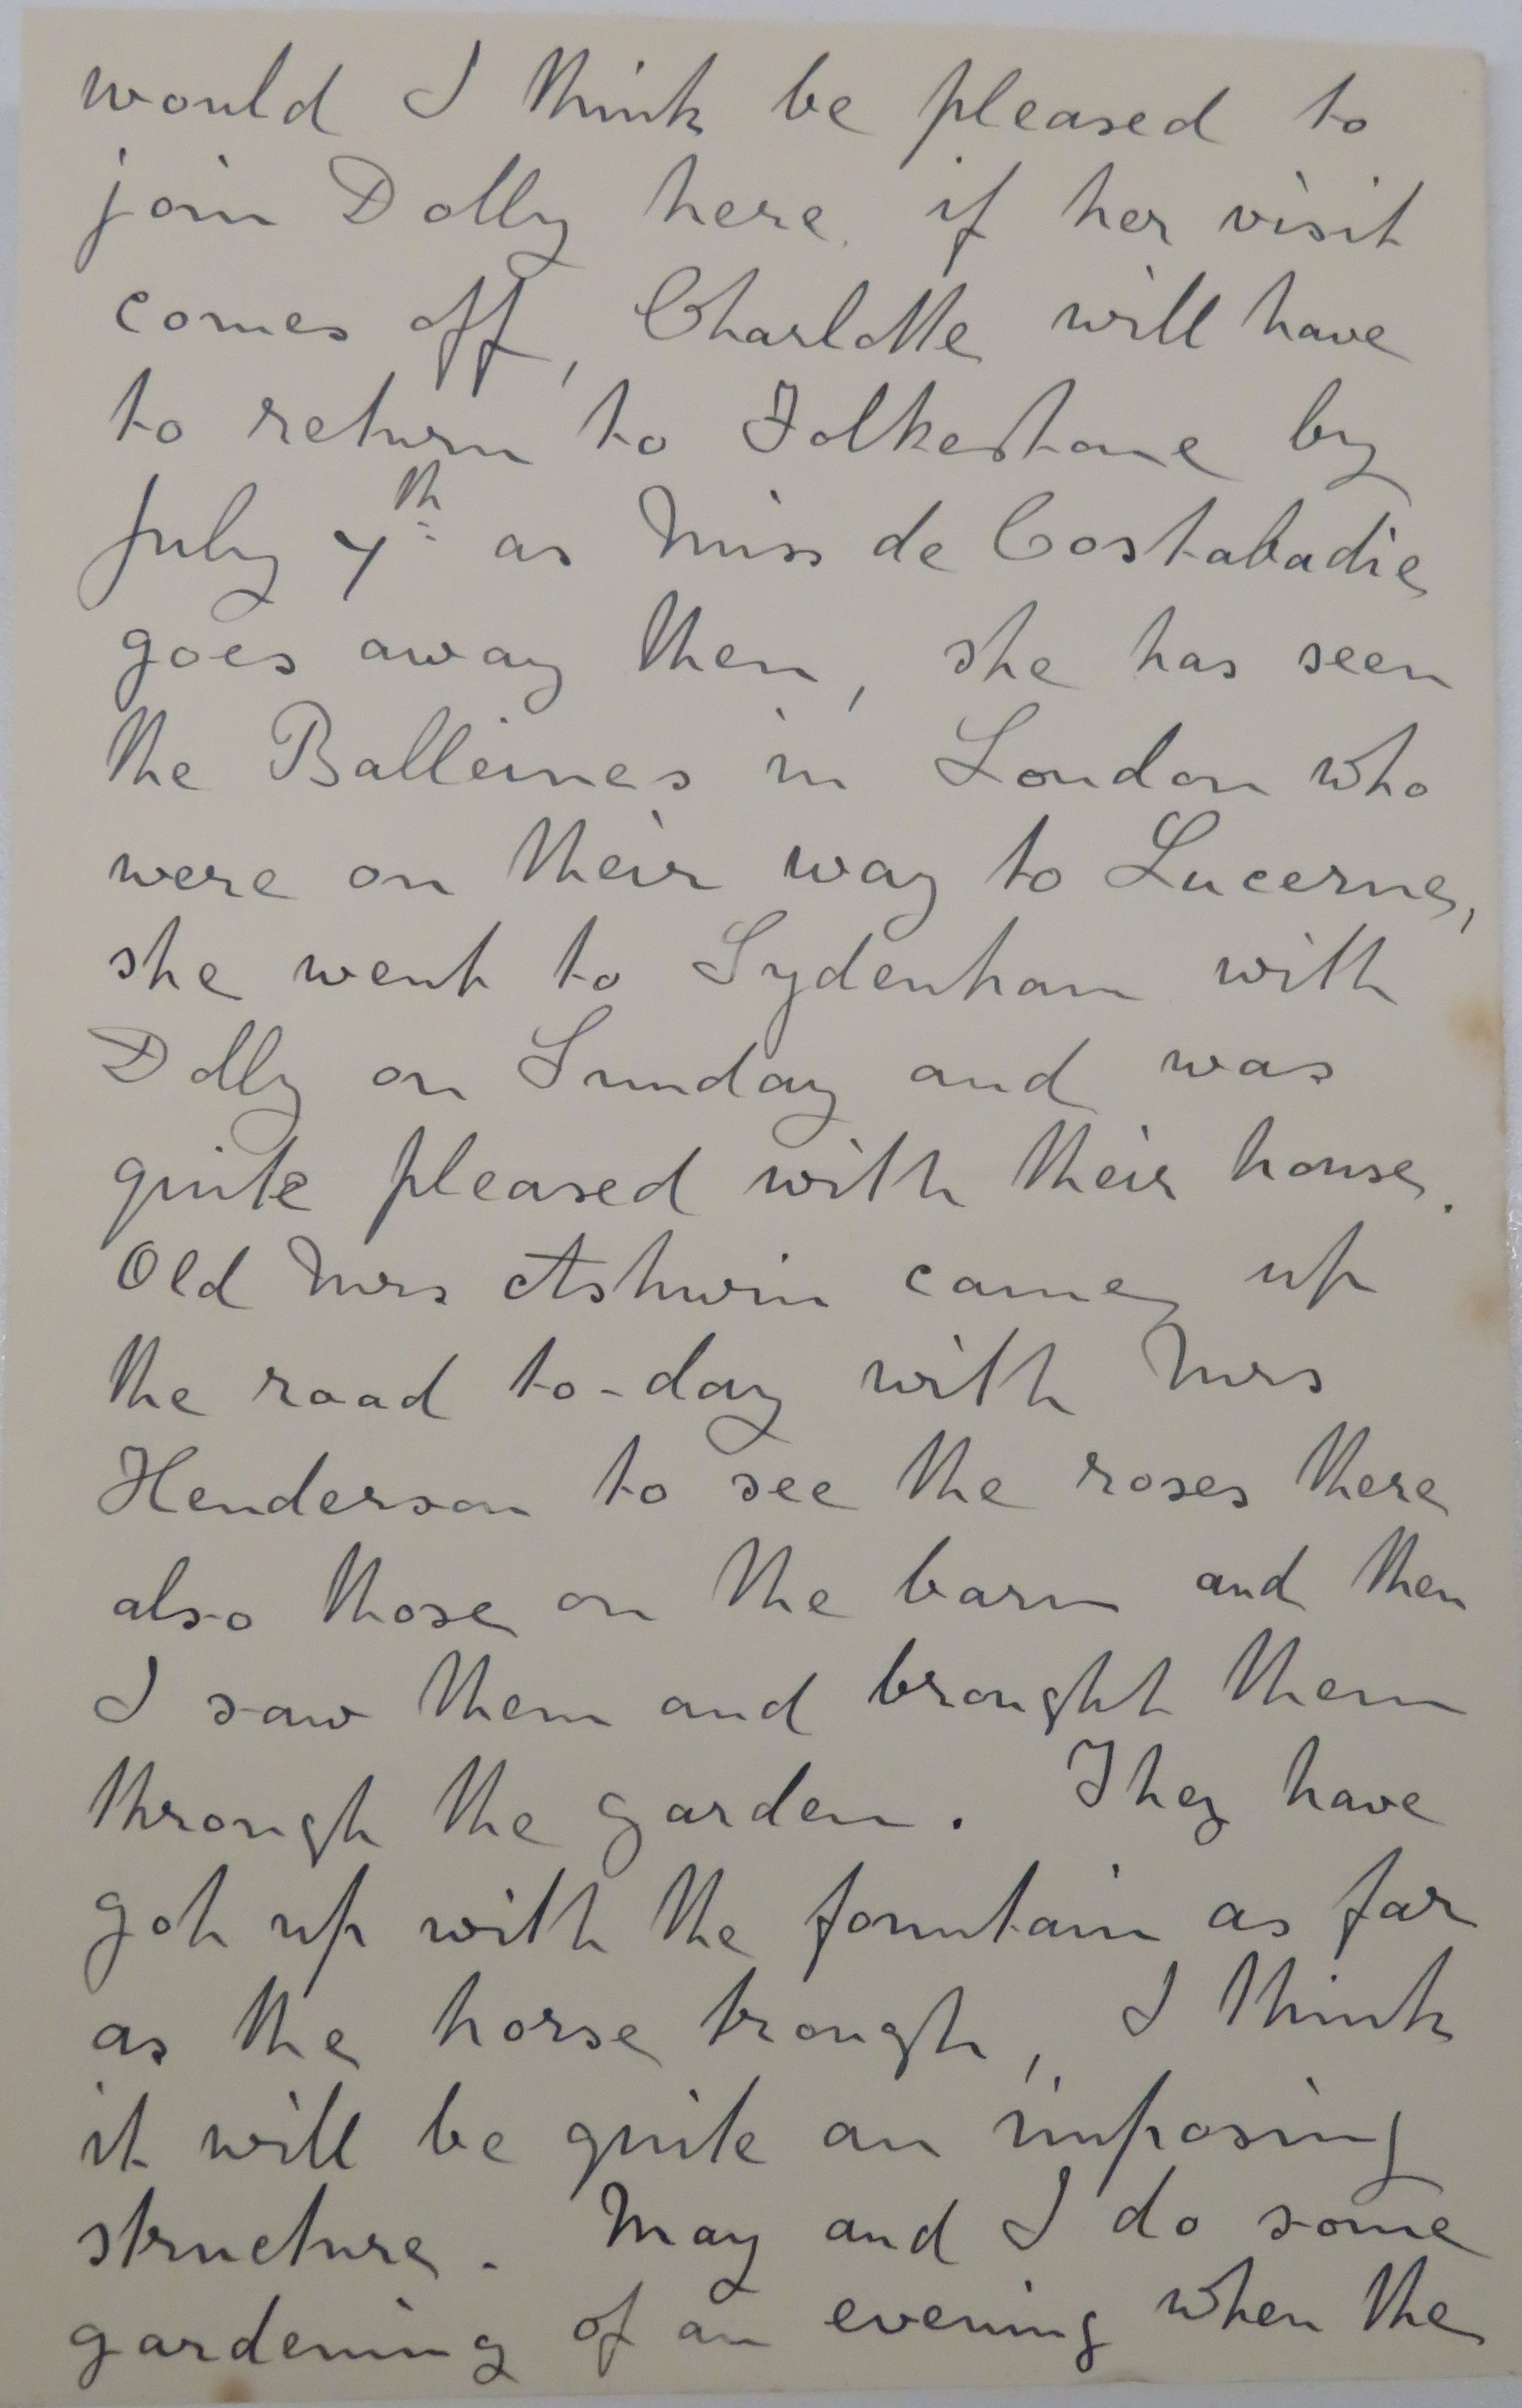 would I think be pleased to
join Dolly here, if her visit
comes off, Charlotte will have
to return to Folkestone by
July 7th as Miss de Costabadie
goes away then, she has seen
the Balleines in London who
were on their way to Lucerne,
she went to Sydenham with
Dolly on Sunday and was
quite pleased with their house.
Old Mrs Ashwin came up
the road to-day with Mrs
Henderson to see the roses there
also those on the barn and then
I saw them and brought them
through the garden. They have
got up with the fountain as far
as the horse trough, I think
it will be quite an imposing
structure. May and I do some
gardening of an evening when the